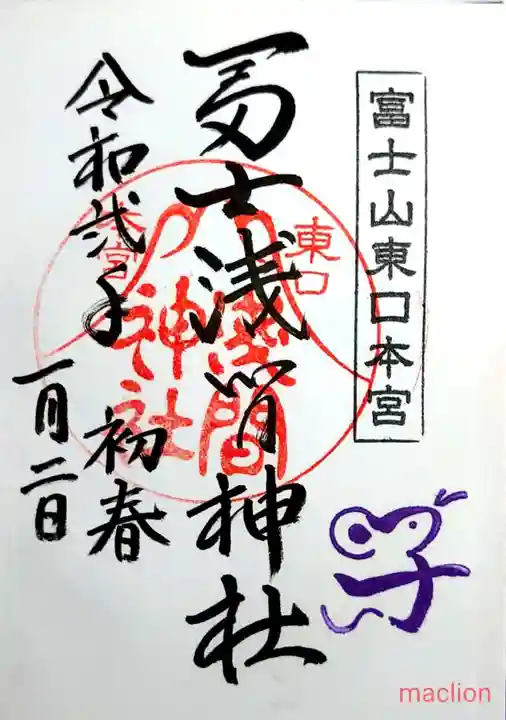 富士山東口本宮
冨士浅間神社
東口
本宮
浅間
神社
令和弐年 初春
一月二日
子
maclion